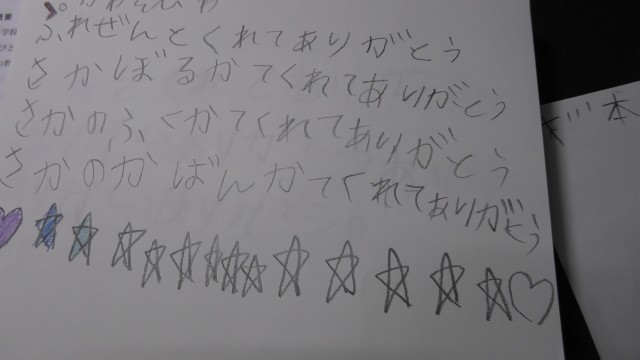 ふれぜんとくれてありがとう
さかぼるかてくれてありがとう
さかのふくかてくれてありがとう
さかのかばんかてくれてありがとう
本